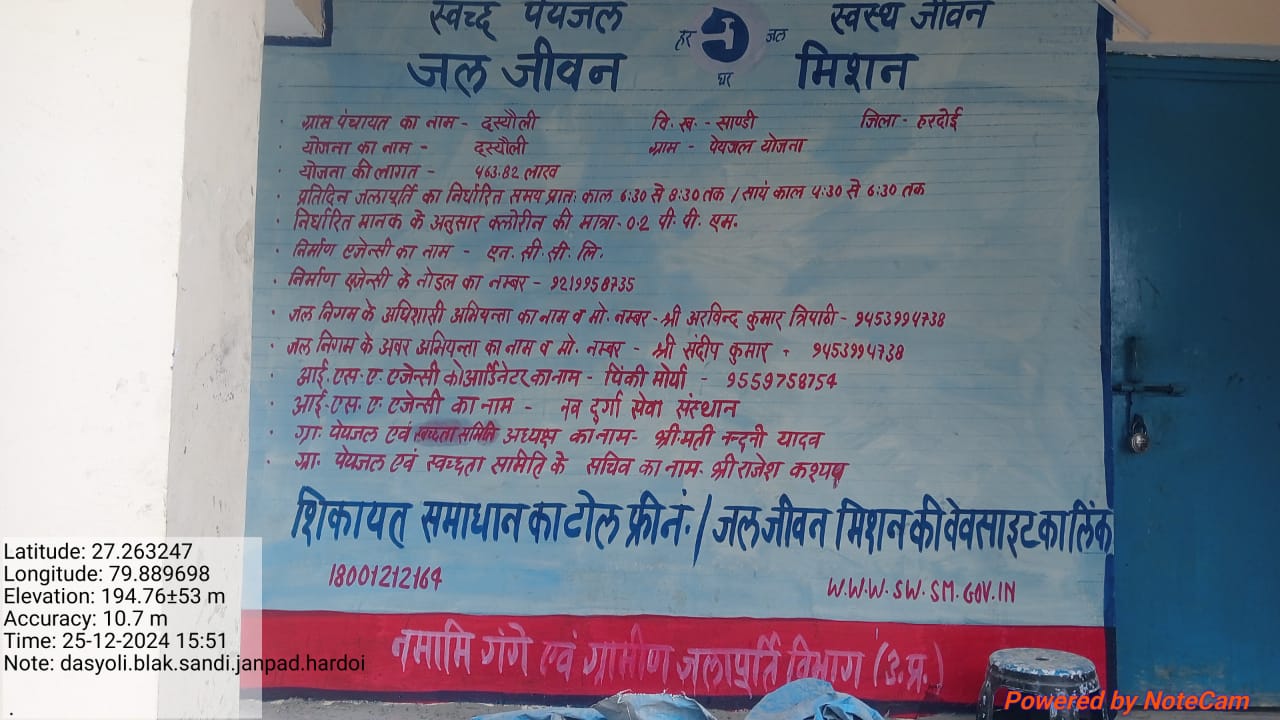 स्वच्छ पेयजल स्वस्थ जीवन
हर जल
घर
जल जीवन मिशन
· ग्राम पंचायत का नाम - दस्यौली वि. ख. - साण्डी जिला - हरदोई
· योजना का नाम - दस्यौली ग्राम - पेयजल योजना
· योजना की लागत - 463.82 लाख
· प्रतिदिन जलापूर्ति का निर्धारित समय प्रातः काल 6:30 से 8:30 तक / सायं काल 4:30 से 6:30 तक
· निर्धारित मानक के अनुसार क्लोरीन की मात्रा - 0.2 पी. पी. एम.
· निर्माण एजेन्सी का नाम - एन. सी. सी. लि.
· निर्माण एजेन्सी के नोडल का नम्बर - 9219958735
· जल निगम के अधिशासी अभियन्ता का नाम व मो. नम्बर - श्री अरविन्द कुमार त्रिपाठी - 9453994738
· जल निगम के अवर अभियन्ता का नाम व मो. नम्बर - श्री संदीप कुमार - 9453994738
· आई. एस. ए. एजेन्सी कोआर्डिनेटर का नाम - पिंकी मौर्या - 9559758754
· आई. एस. ए. एजेन्सी का नाम - नव दुर्गा सेवा संस्थान
· ग्रा. पेयजल एवं स्वच्छता समिति अध्यक्ष का नाम - श्रीमती नन्दनी यादव
· ग्रा. पेयजल एवं स्वच्छता समिति के सचिव का नाम - श्री राजेश कश्यप
शिकायत समाधान का टोल फ्री नं. / जल जीवन मिशन की वेवसाइट का लिंक
18001212164 W.W.W. SW. SM. GOV.IN
नमामि गंगे एवं ग्रामीण जलापूर्ति विभाग (उ.प्र.)
Latitude: 27.263247
Longitude: 79.889698
Elevation: 194.76±53 m
Accuracy: 10.7 m
Time: 25-12-2024 15:51
Note: dasyoli.blak.sandi.janpad.hardoi
Powered by NoteCam